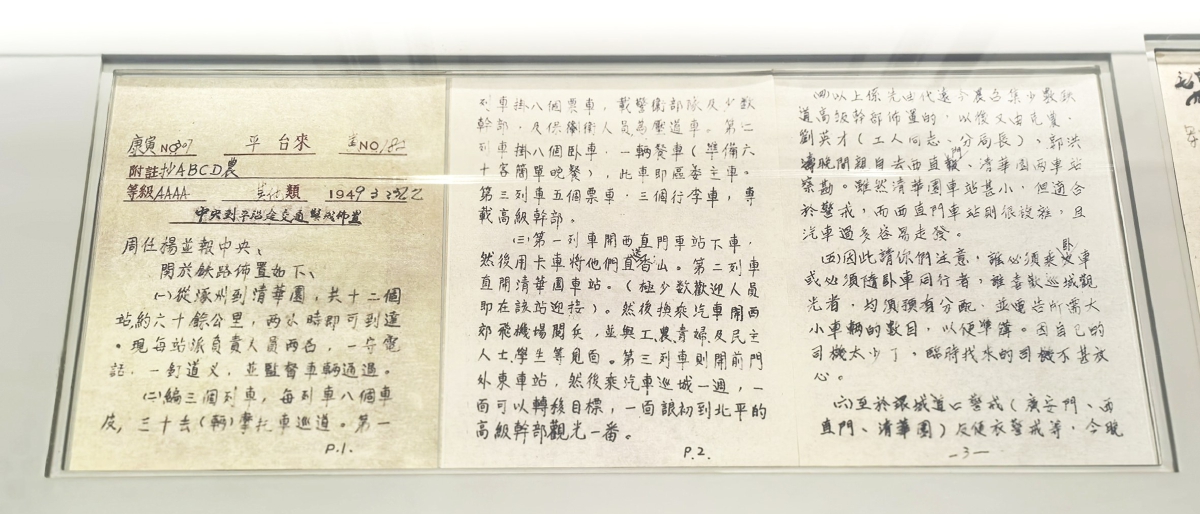 康寅NO 平台來 NO
附註抄ABCD農
等級AAAA 類 1949 3
中央到平沿途交通警戒佈置
周任楊並報中央、
關於鉄路佈置如下、
㈠從涿州到清華園，共十二個
站約六十餘公里，兩小時即可到達
。現每站派負責人員兩名，一守電
話，一釘道义，並監督車輛通過。
㈡編三個列車，每列車八個車
皮，三十去(輛)摩托車巡道。第一
P.1.
列車掛八個票車，載警衛部隊及少數
幹部，及保衛人員為壓道車。第二
列車掛八個卧車，一輛餐車(準備六
十客簡單晚餐)，此車即區委主車。
第三列車五個票車，三個行李車，專
載高級幹部。
㈢第一列車開西直門車站下車，
然後用卡車將他們直送香山。第二列車
直開清華園車站。(極少数歡迎人員
即在該站迎接)。然後換乘汽車開西
郊飛機場閱兵，並與工農青婦及民主
人士學生等見面。第三列車則開前門
外東車站，然後乘汽車巡城一週，一
面可以轉移目標，一面讓初到北平的
高級幹部觀光一番。
P.2.
㈣以上係先由代遠介農召集少數鉄
道高級幹部佈置的，以後又由克農、
劉英才(工人同志、分局長)，郭洪
濤晚間親自去西直門、清華園兩車站
察勘。雖然清華園車站甚小，但適合
於警戒，而西直門車站則很複雜，且
汽車過多容易走發。
㈤因此請你們注意，誰必須乘卧車
或必須隨卧車同行者，誰喜歡巡城觀
光者，均須預有分配，並電告所需大
小車輛的數目，以便準備。因自己的
司機太少了，臨時找來的司機不甚放
心。
㈥至於環城道口警戒(廣安門、西
直門、清華園)及便衣警戒等，今晚
-3-